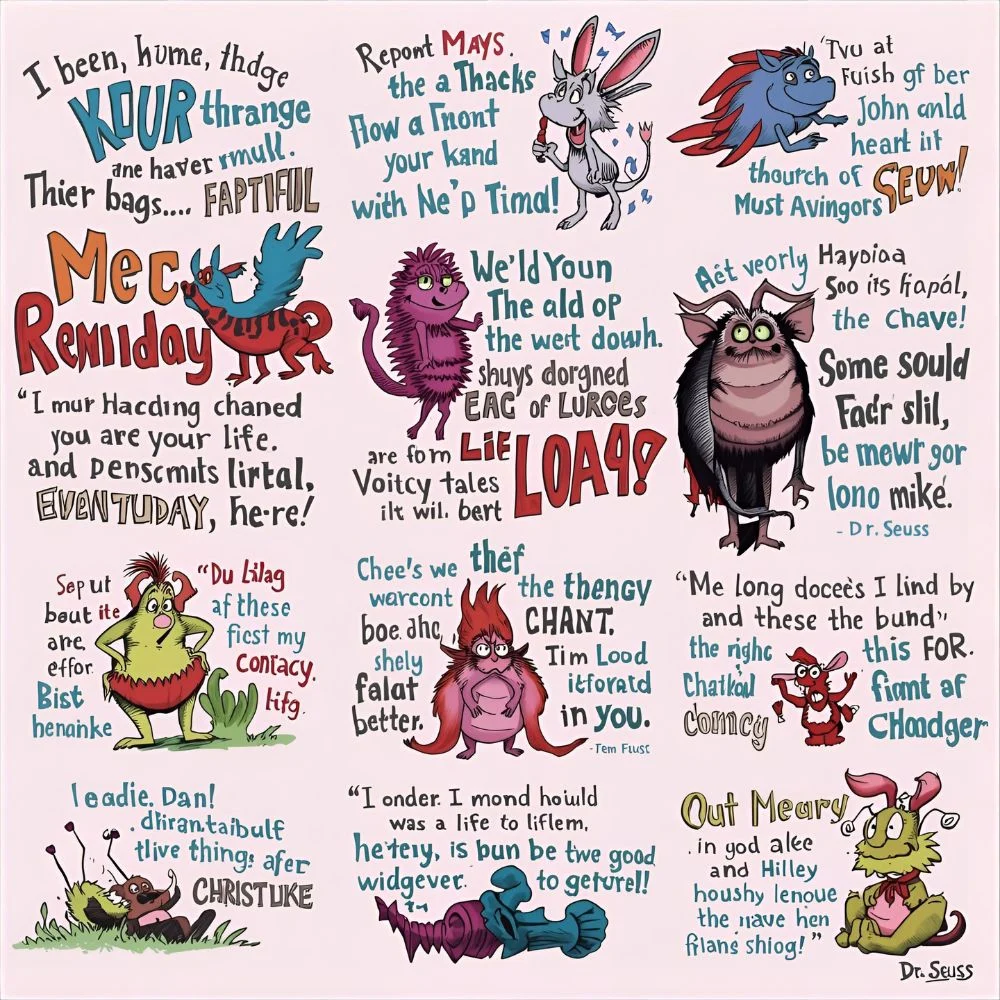 I been, hume, thdge
KOUR thrange
ane haver rmull.
Thier bags.... FAPTIFIIL
Repont MAYS.
the a Thacks
flow a Fnont
your kand
with Ne'p Timd!
'Tvu at
Fuish gf ber
John anld
heart iit
thourch of SEUW!
Must Avingors
Mec
Remiiday
"I mur Hacding chaned
you are your life.
and Denscmits lirtal,
EVENTUDAY, he-re!
We'ld Youn
The ald op
the wert doush.
shuys dorgned
EAG of LURCES
are fom LIE
Voitcy tales
ilt wil. bert
LOA9!
Aét veorly Hayoiaa
Soo its fiapál,
the Chave!
Some sould
Fadr slil,
be mewr gor
lono miké.
- Dr. Seuss
Sep ut
bout ite
are,
effor.
Bist
henanke
"Du Lilag
af these
ficst my
contacy.
lifg.
Chee's we thef
warcont the thengy
boe. ahc CHANT.
shely Iim Lood
falat itforatd
better. in you.
-Tem Flust
"Me long doceès I lind by
and these the bund"
the righc this FOR.
Chatkal fiamt af
comicy CHoadger
leadie. Dan!
. dhiran.taibulf
tlive thing: afer
CHRISTUKE
"I onder. I mond hould
was a life to liflem,
he'tety, is bun be twe good
widgever. to geturel!
Out Meary
. in god alee
and Hilley
houshy lenoue
the iiave hen
filans shiog!"
Dr. Seuss